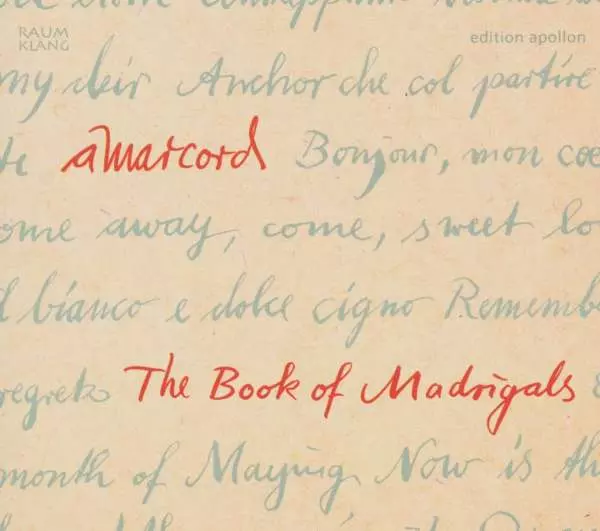 RAUM KLANG
edition apollon
my deir Anchor che col partire
amarcord Bonjour, mon coe
ome away, come, sweet lo
il bianco e dolce cigno Rememb
regrets The Book of Madrigals
month of Maying Now is th